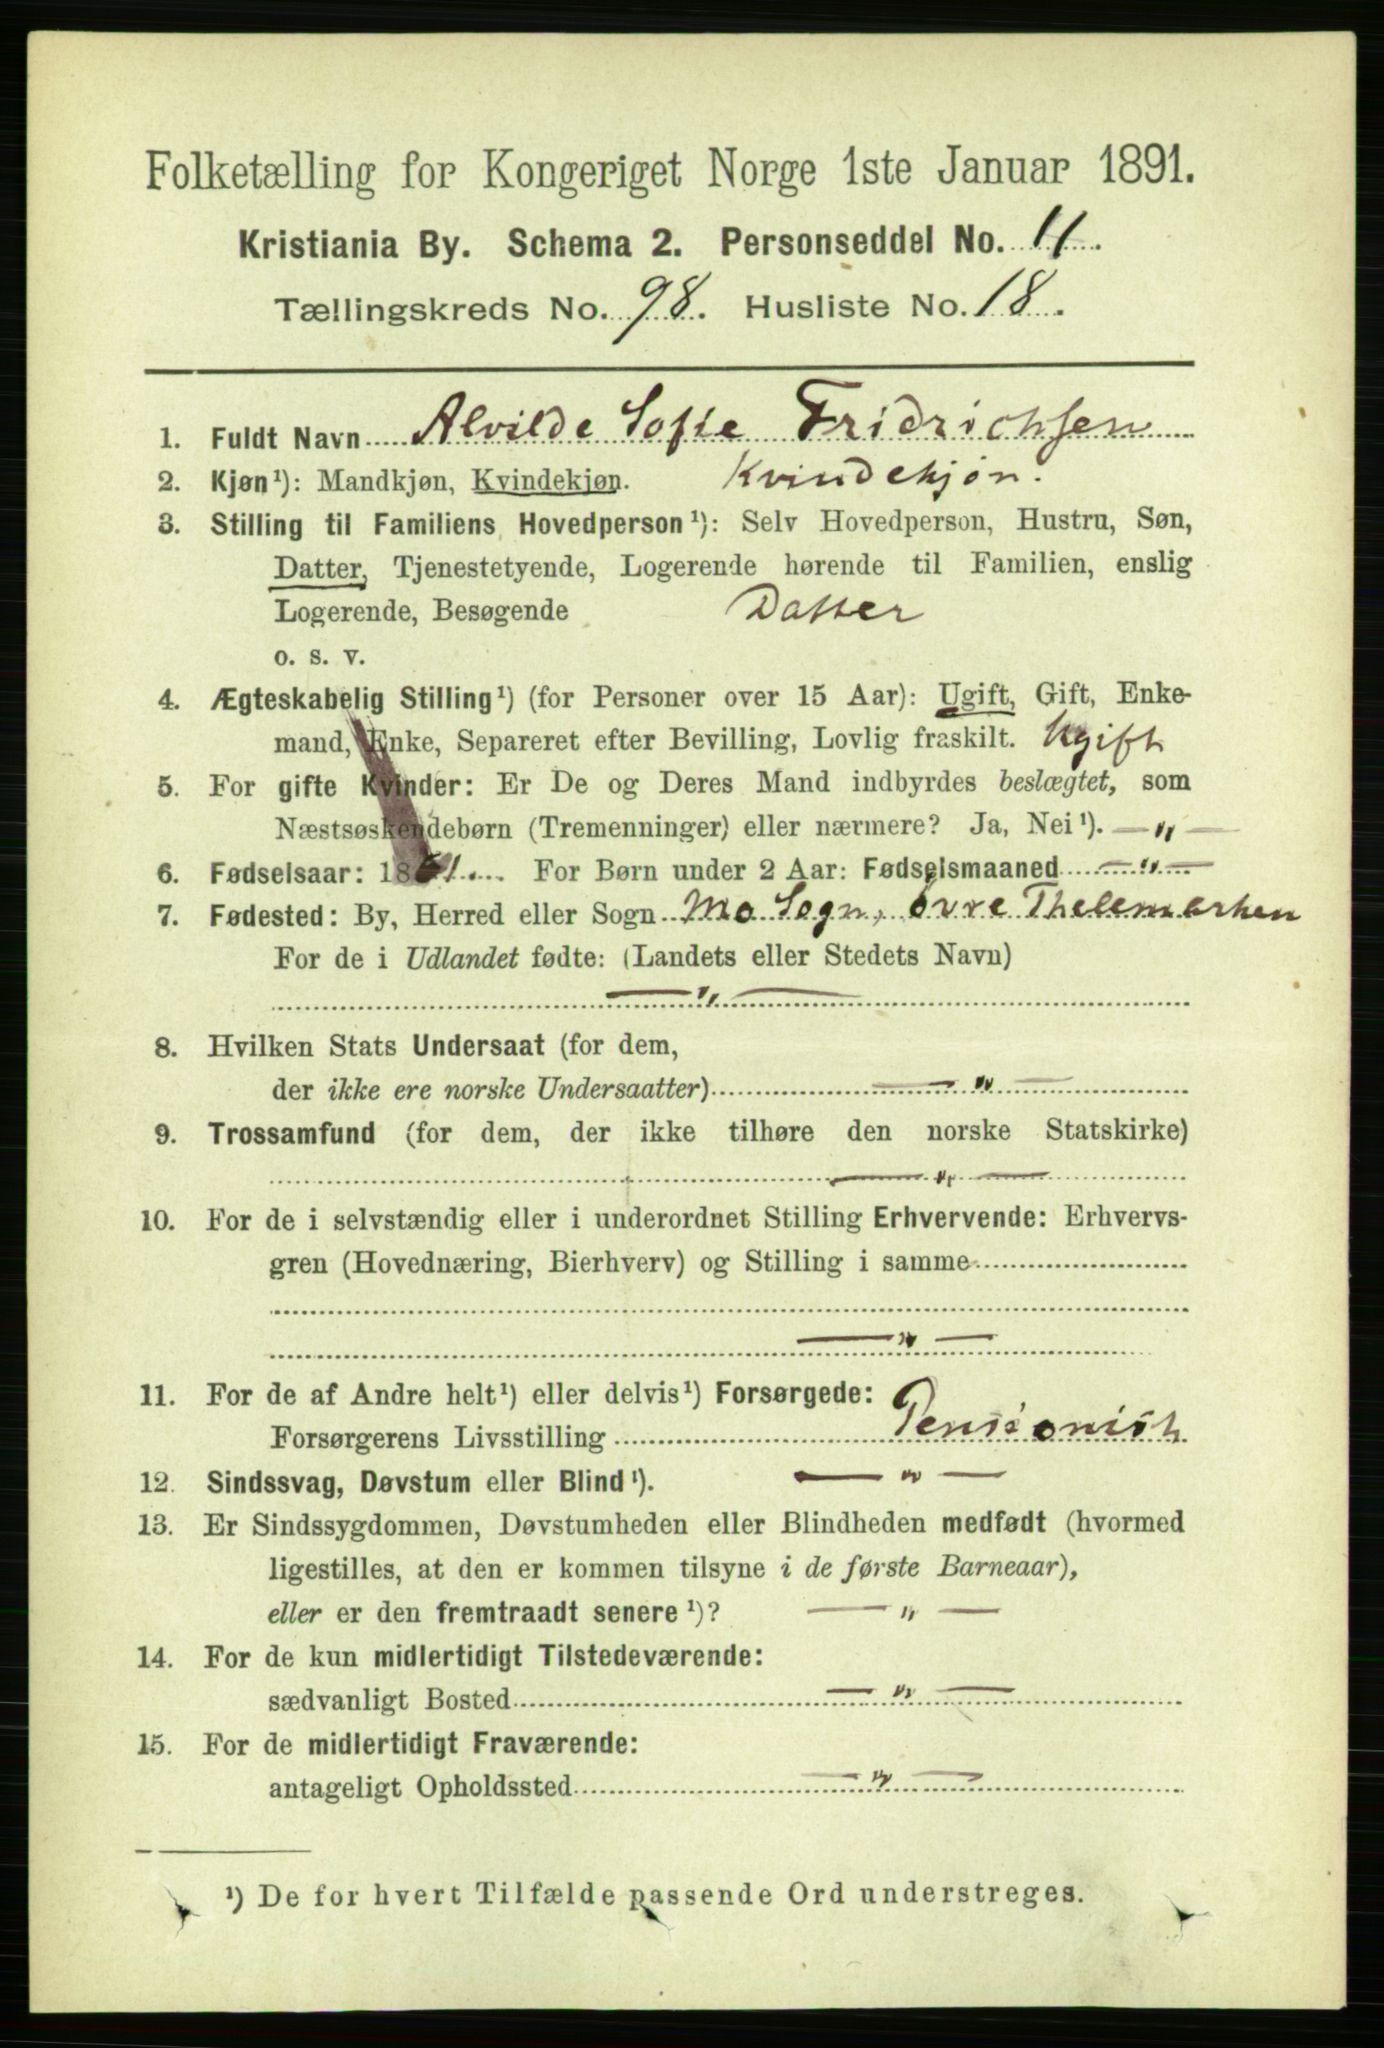 Folketælling for Kongeriget Norge 1ste Januar 1891.
Kristiania By. Schema 2. Personseddel No. 11.
Tællingskreds No. 98. Husliste No. 18.
1. Fuldt Navn Alvilde Sofie Fridrichsen
2. Kjøn¹): Mandkjøn, Kvindekjøn. Kvindekjøn.
3. Stilling til Familiens Hovedperson¹): Selv Hovedperson, Hustru, Søn,
Datter, Tjenestetyende, Logerende hørende til Familien, enslig
Logerende, Besøgende Datter
o. s. v.
4. Ægteskabelig Stilling¹) (for Personer over 15 Aar): Ugift, Gift, Enke-
mand, Enke, Separeret efter Bevilling, Lovlig fraskilt. Ugift
5. For gifte Kvinder: Er De og Deres Mand indbyrdes beslægtet, som
Næstsøskendebørn (Tremenninger) eller nærmere? Ja, Nei¹). — " —
6. Fødselsaar: 1861. For Børn under 2 Aar: Fødselsmaaned — " —
7. Fødested: By, Herred eller Sogn Mo Sogn, Øvre Thelemarken
For de i Udlandet fødte: (Landets eller Stedets Navn)
— " —
8. Hvilken Stats Undersaat (for dem,
der ikke ere norske Undersaatter) — " —
9. Trossamfund (for dem, der ikke tilhøre den norske Statskirke)
— " —
10. For de i selvstændig eller i underordnet Stilling Erhvervende: Erhvervs-
gren (Hovednæring, Bierhverv) og Stilling i samme
— " —
11. For de af Andre helt¹) eller delvis¹) Forsørgede:
Forsørgerens Livsstilling Pensionist
12. Sindssvag, Døvstum eller Blind¹). — " —
13. Er Sindssygdommen, Døvstumheden eller Blindheden medfødt (hvormed
ligestilles, at den er kommen tilsyne i de første Barneaar),
eller er den fremtraadt senere¹)? — " —
14. For de kun midlertidigt Tilstedeværende:
sædvanligt Bosted — " —
15. For de midlertidigt Fraværende:
antageligt Opholdssted — " —
¹) De for hvert Tilfælde passende Ord understreges.